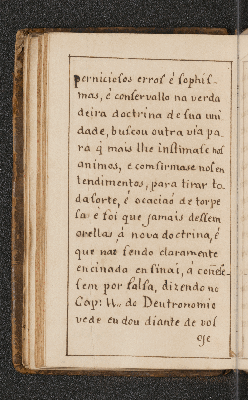 perniciosos erros é sophis-
mas, é conservallo na verda
deira doctrina de sua uni
dade, buscou outra via pa
ra q̃ mais lhe instimase nos
animos, e comfirmase nos en
tendimentos, para tirar to-
da sorte, é ocacião de torpe
sa é foi que jamais dessem
orellas, á nova doctrina, é
que naõ sendo claramente
encinada en sinai, á conhe-
sem por falsa, dizendo no
Cap: 11.. do Deutronomio
vede eu dou diante de vos
oje